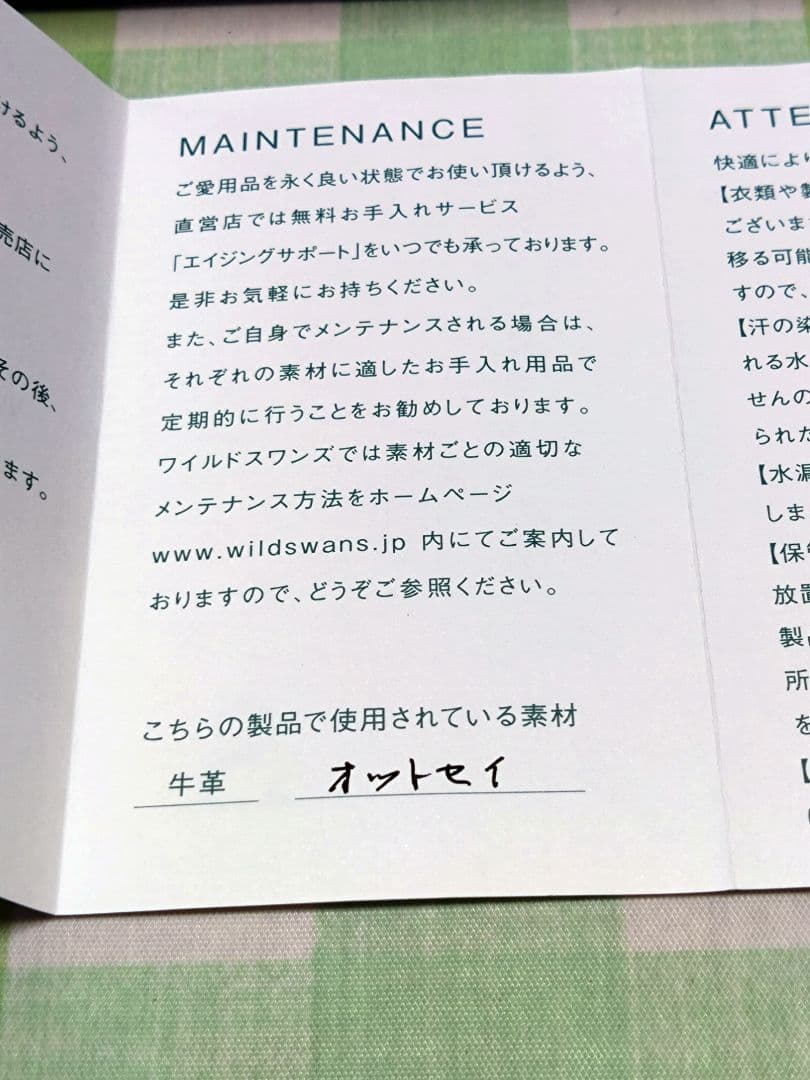 けるよう、
売店に
その後、
ます。
MAINTENANCE
ご愛用品を永く良い状態でお使い頂けるよう、
直営店では無料お手入れサービス
「エイジングサポート」をいつでも承っております。
是非お気軽にお持ちください。
また、ご自身でメンテナンスされる場合は、
それぞれの素材に適したお手入れ用品で
定期的に行うことをお勧めしております。
ワイルドスワンズでは素材ごとの適切な
メンテナンス方法をホームページ
www.wildswans.jp 内にてご案内して
おりますので、どうぞご参照ください。
こちらの製品で使用されている素材
牛革 オットセイ
ATTE
快適により
【衣類や製
ございま
移る可能
すので、
【汗の染
れる水
せんの
られた
【水漏
しま
【保管
放置
製品
所
を
【